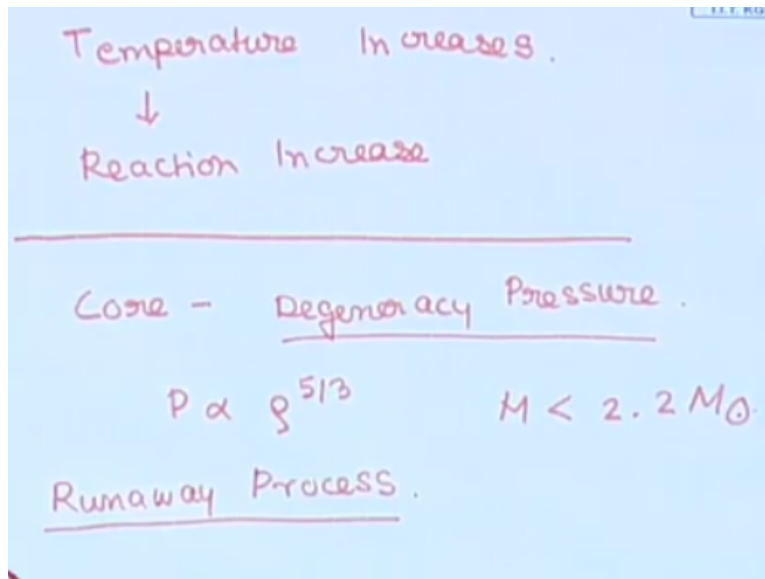 Temperature Increases.
↓
Reaction Increase
Core - Degeneracy Pressure.
P ∝ ρ^5/3 M < 2.2 M⊙
Runaway Process.